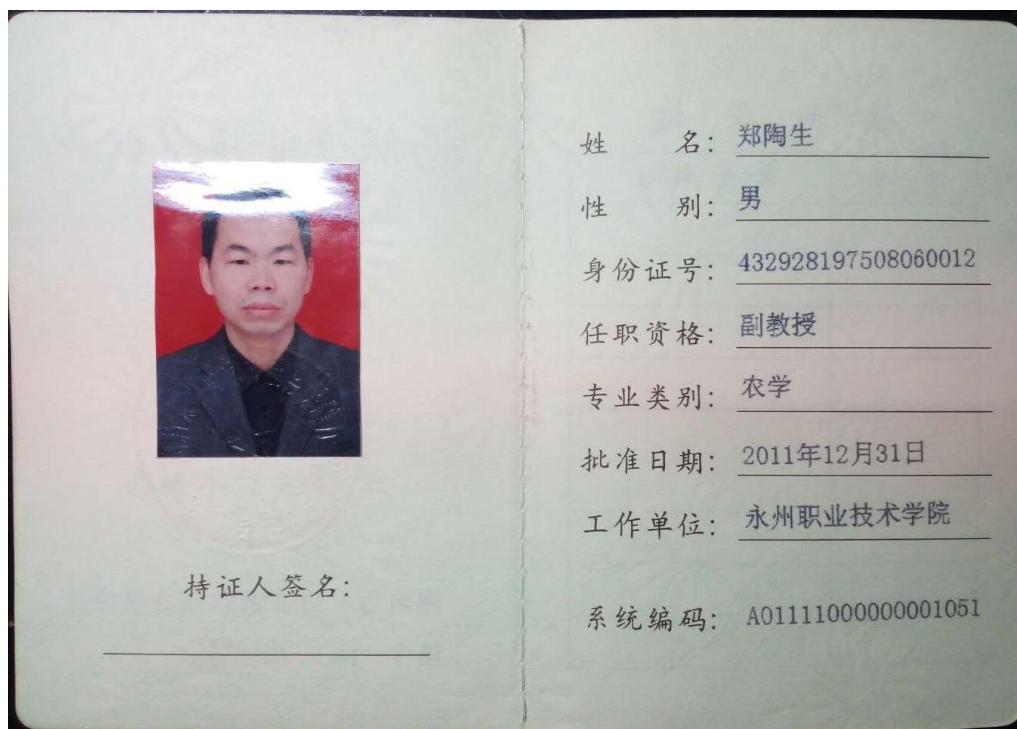 持证人签名：
姓 名：郑陶生
性 别：男
身份证号：432928197508060012
任职资格：副教授
专业类别：农学
批准日期：2011年12月31日
工作单位：永州职业技术学院
系统编码：A01111000000001051